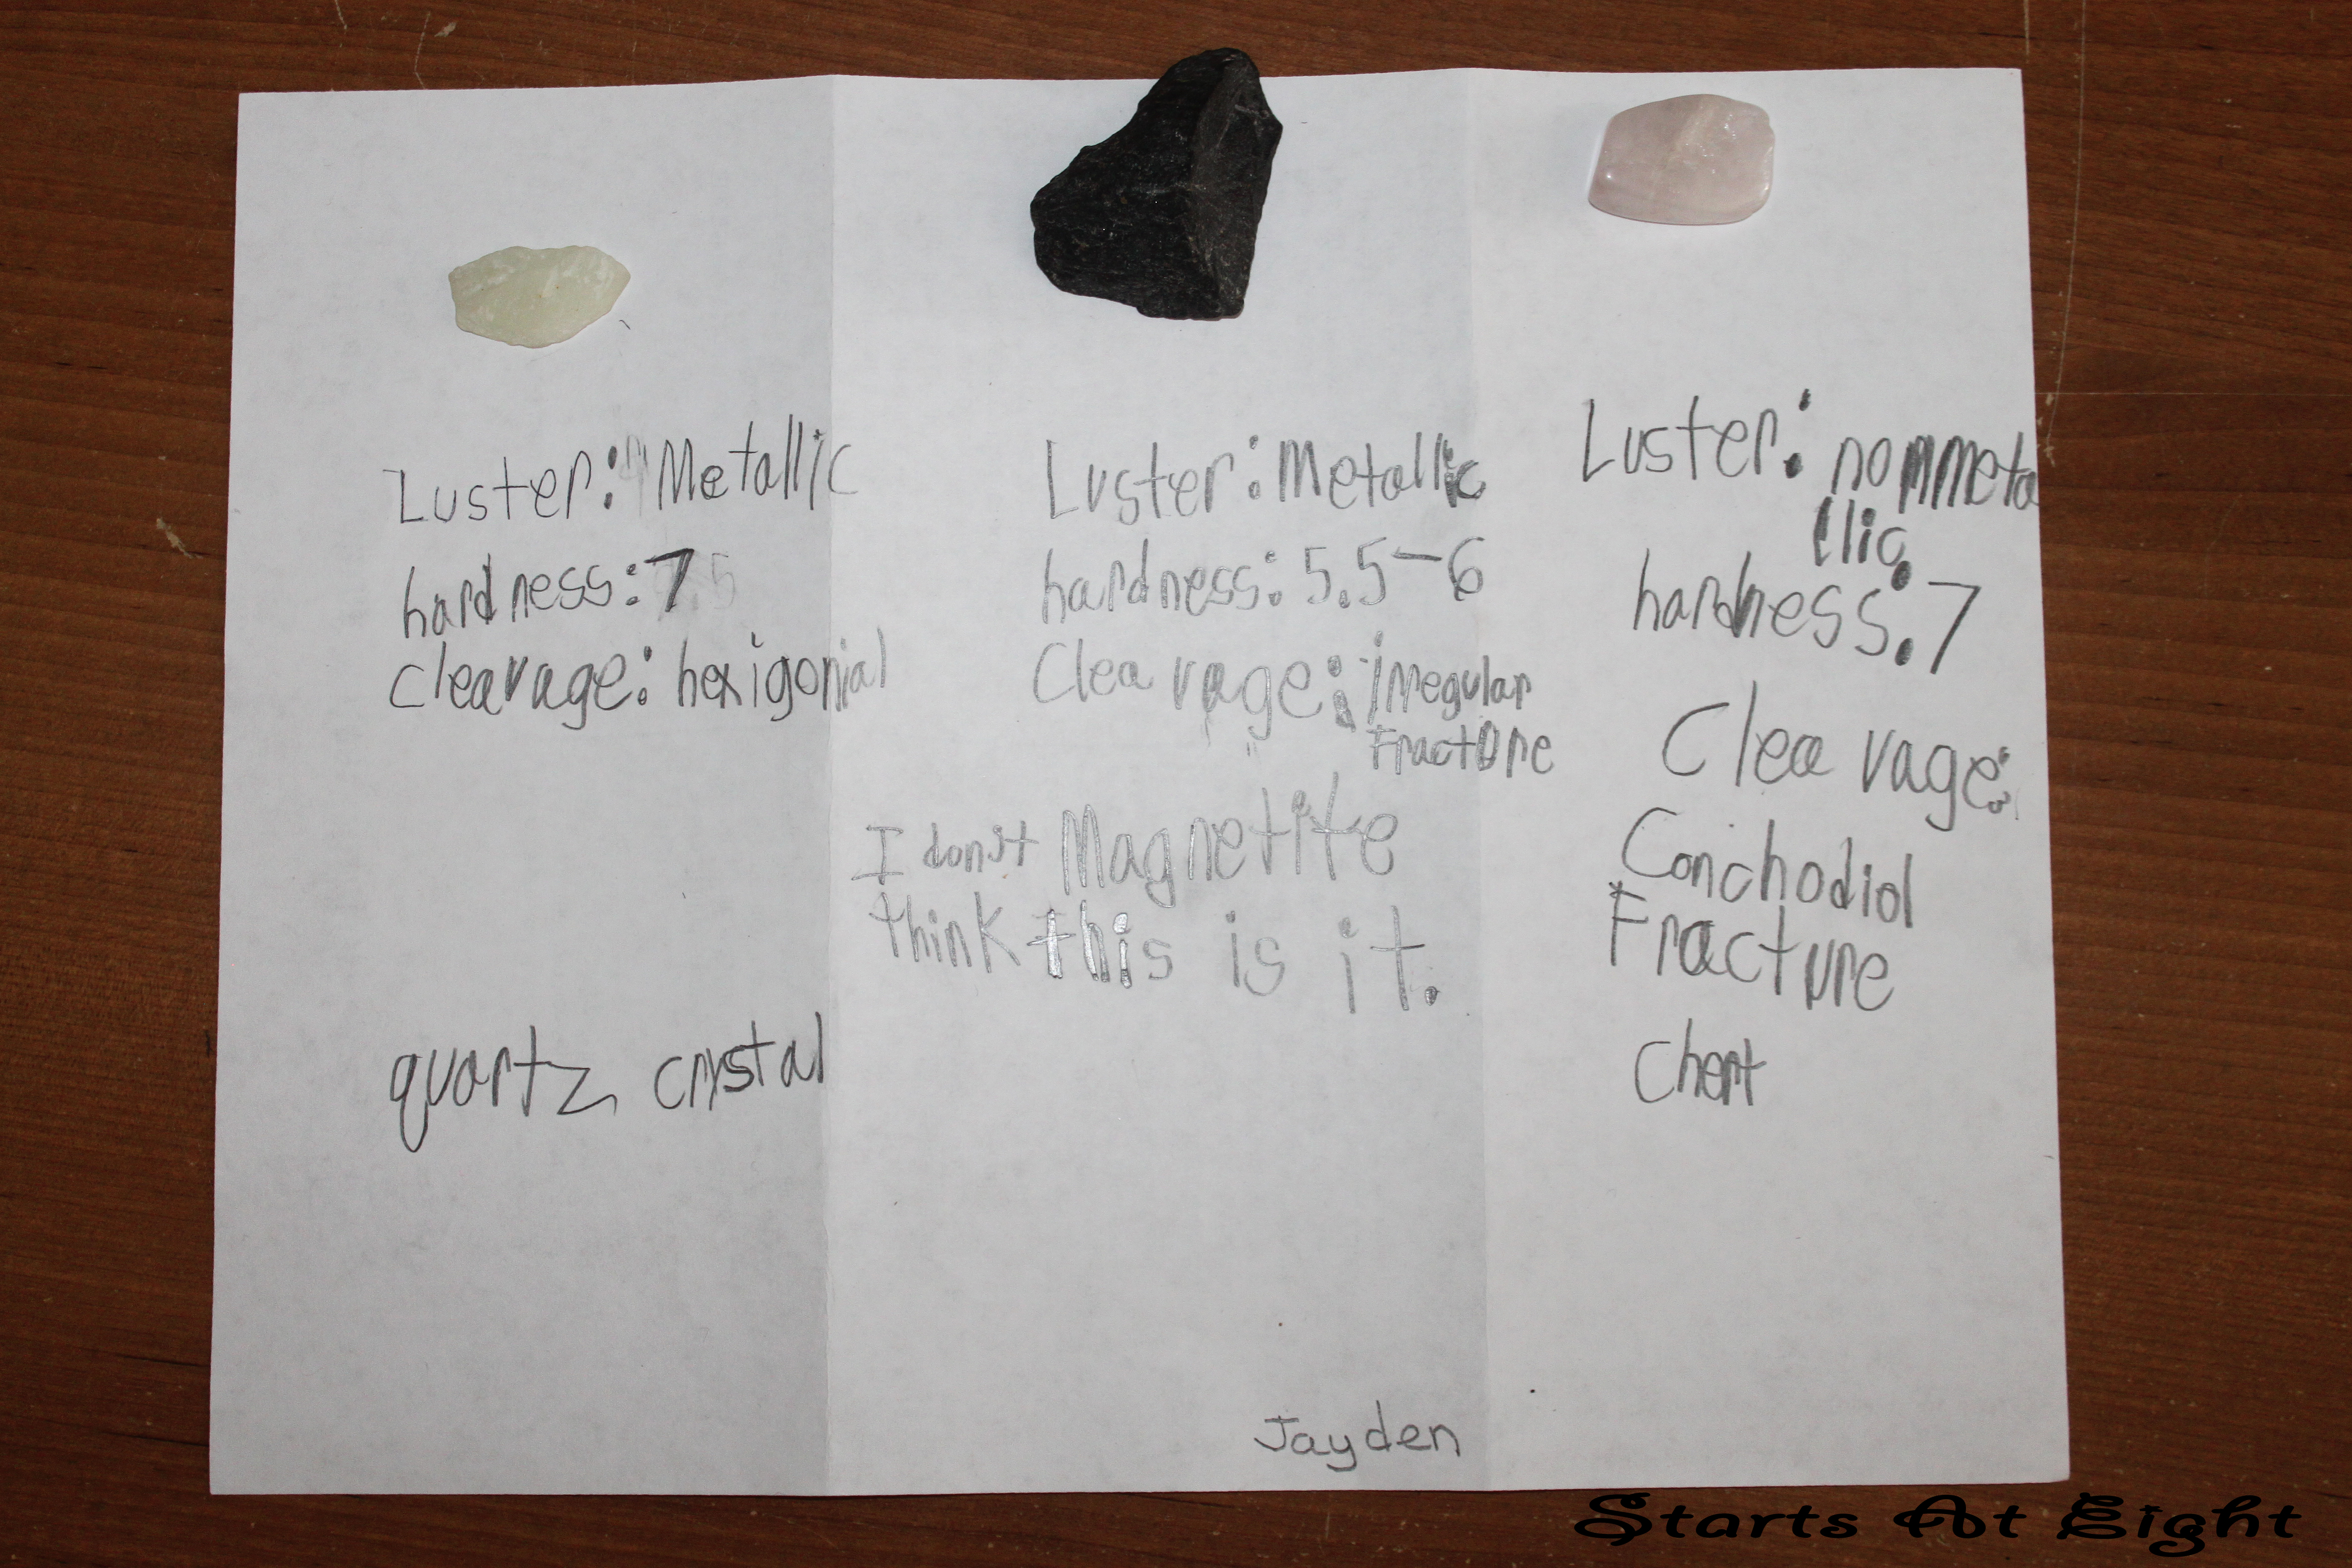 Luster: Metallic
hardness: 7
cleavage: hexigonial
quartz crystal
Luster: Metallic
hardness: 5.5-6
Cleavage: irregular
Fracture
I don't Magnetite
think this is it.
Luster: nonmeta
llic
hardness: 7
Cleavage:
Conchodiol
Fracture
Chert
Jayden
Starts At Eight